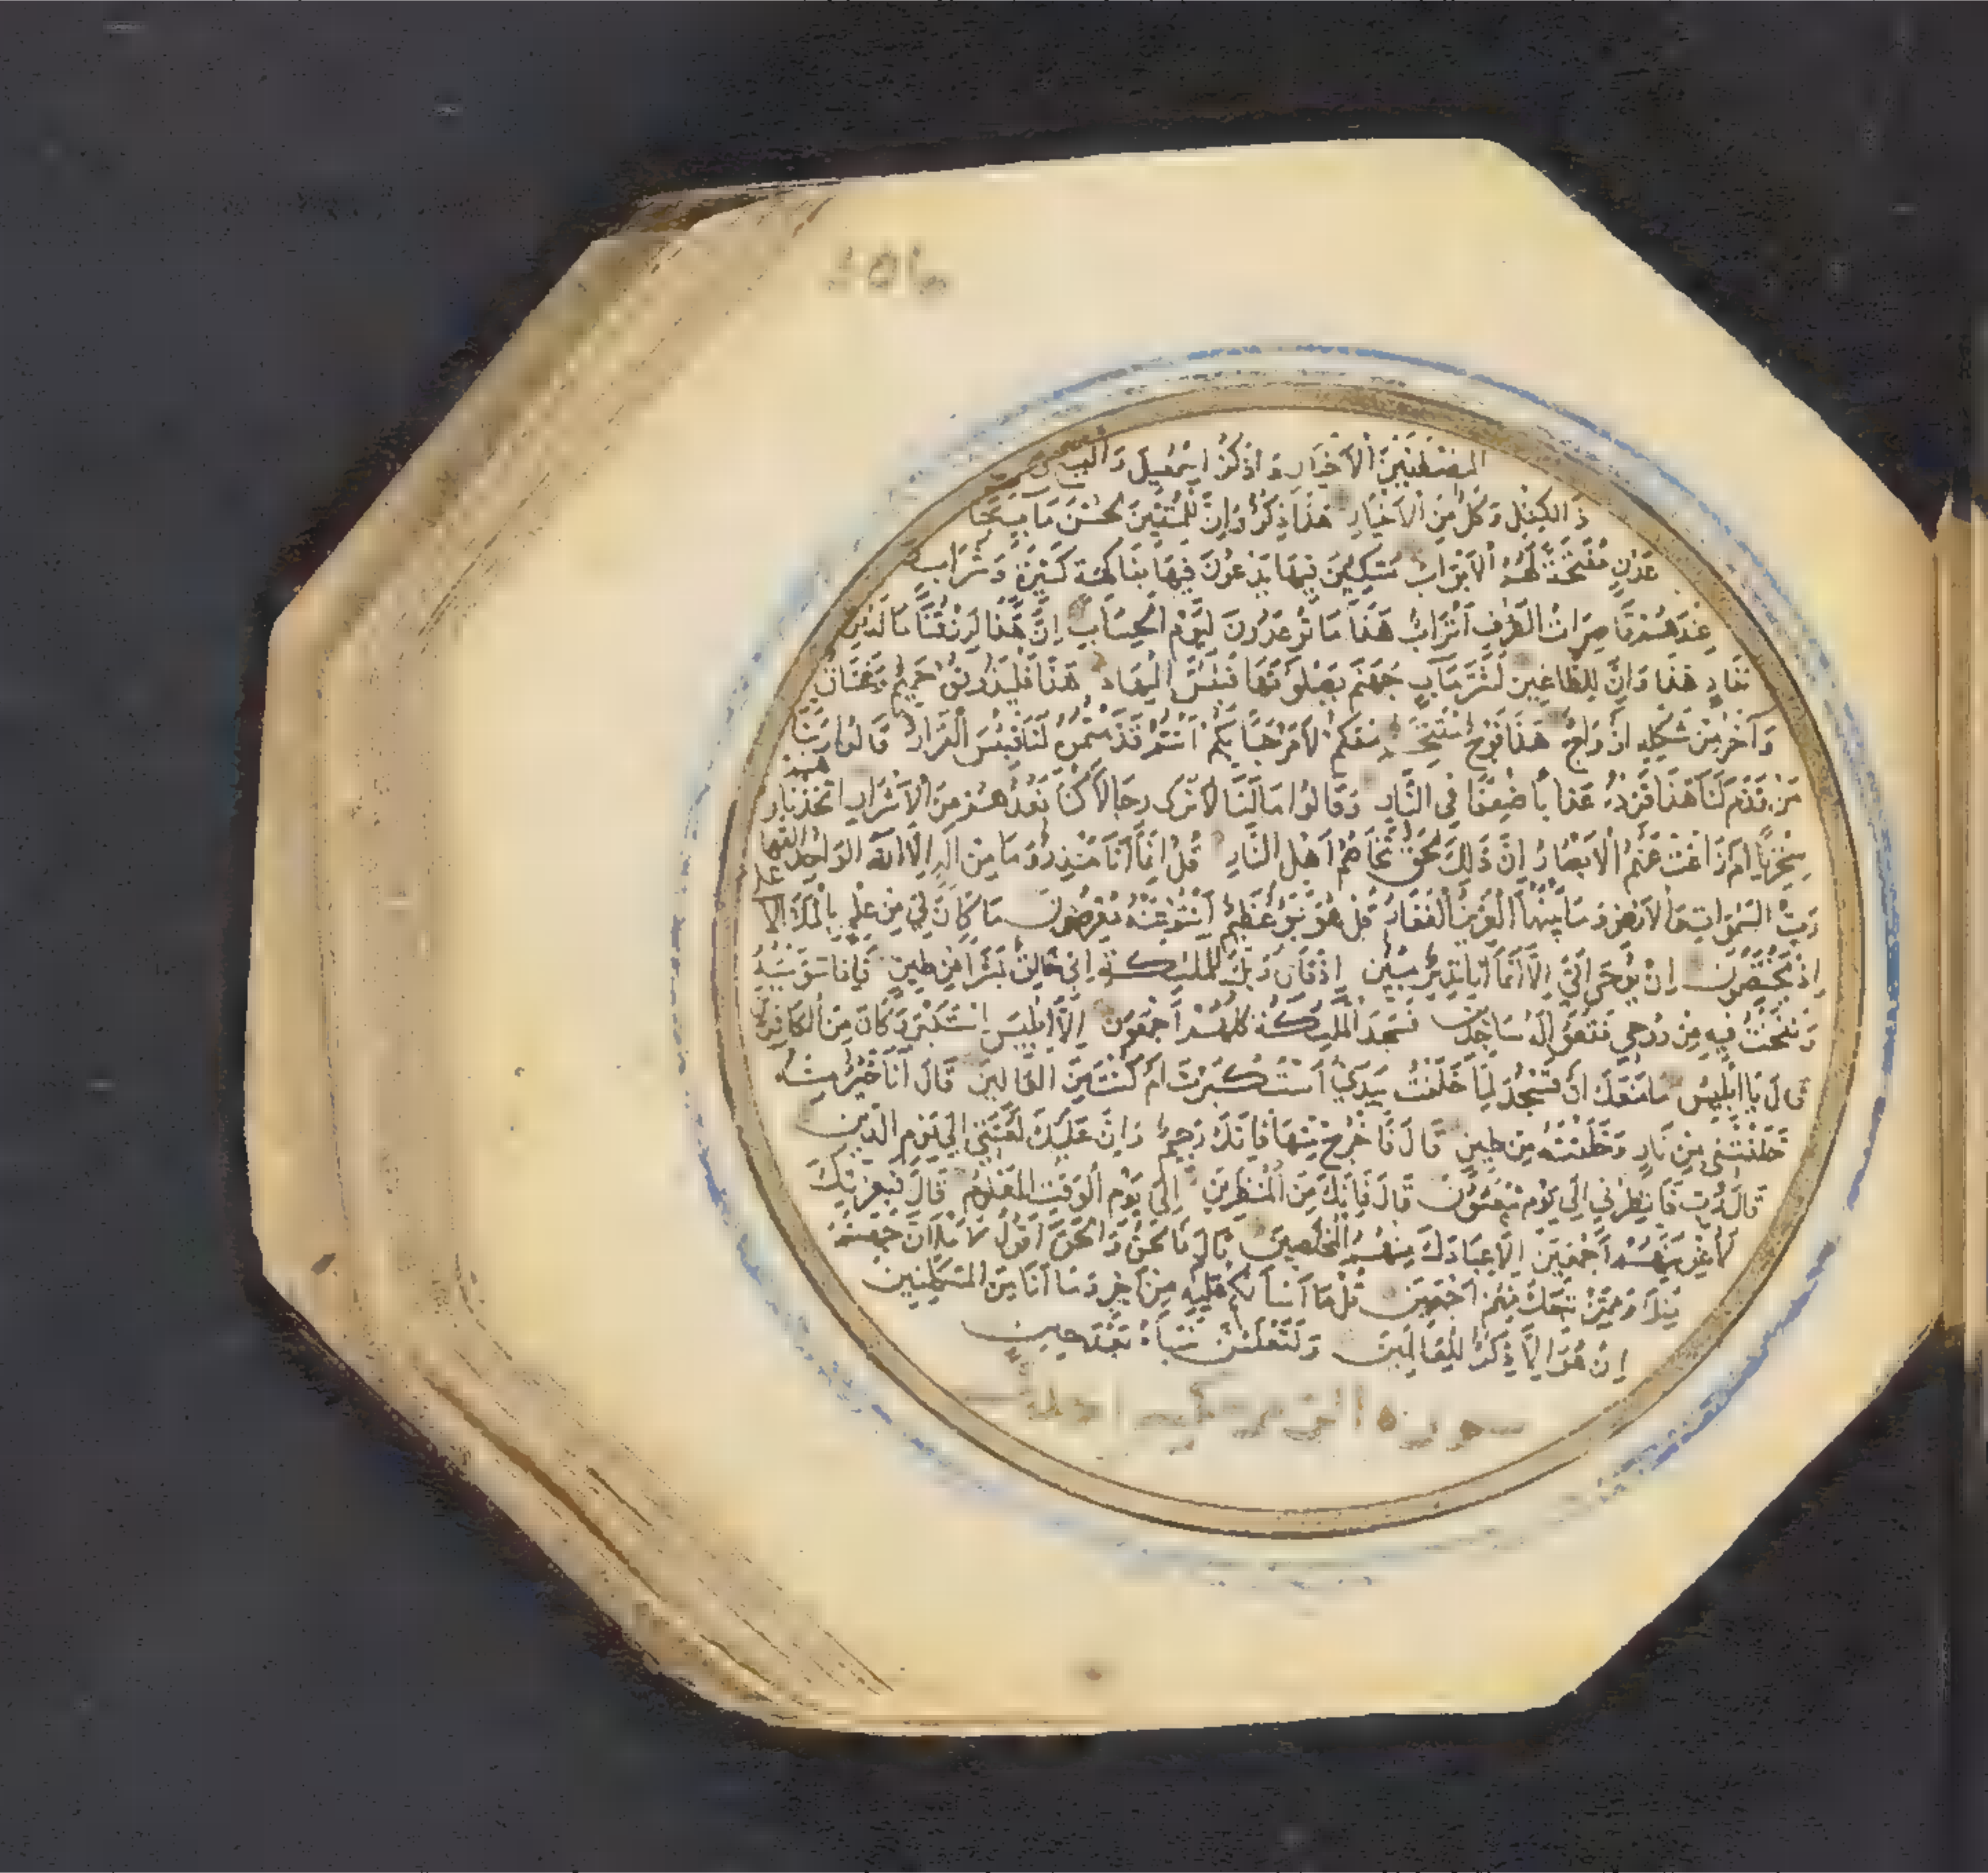 المصطفين الأخيار واذكر اسمعيل واليسع
ذا الكفل وكل من الأخيار هذا ذكر وإن للمتقين لحسن مآب جنات
عدن مفتحة لهم الأبواب متكئين فيها يدعون فيها بفاكهة كثيرة وشراب
عندهم قاصرات الطرف أتراب هذا ما توعدون ليوم الحساب إن هذا لرزقنا ما له من
نفاد هذا وإن للطاغين لشر مآب جهنم يصلونها فبئس المهاد هذا فليذوقوه حميم وغساق
وآخر من شكله أزواج هذا فوج مقتحم معكم لا مرحبا بكم أنتم قدمتموه لنا فبئس القرار قالوا ربنا
من قدم لنا هذا فزده عذابا ضعفا في النار وقالوا ما لنا لا نرى رجالا كنا نعدهم من الأشرار اتخذناهم
سخريا أم زاغت عنهم الأبصار إن ذلك لحق تخاصم أهل النار قل إنما أنا منذر وما من إله إلا الله الواحد القهار
رب السموات والأرض وما بينهما العزيز الغفار قل هو نبؤ عظيم أنتم عنه معرضون ما كان لي من علم بالملإ الأعلى
إذ يختصمون إن يوحى إلي إلا أنما أنا نذير مبين إذ قال ربك للملئكة إني خالق بشرا من طين فإذا سويته
ونفخت فيه من روحي فقعوا له ساجدين فسجد الملئكة كلهم أجمعون إلا إبليس استكبر وكان من الكافرين
قال يا إبليس ما منعك أن تسجد لما خلقت بيدي أستكبرت أم كنت من العالين قال أنا خير منه
خلقتني من نار وخلقته من طين قال فاخرج منها فإنك رجيم وإن عليك لعنتي إلى يوم الدين
قال رب فانظرني إلى يوم يبعثون قال فإنك من المنظرين إلى يوم الوقت المعلوم قال فبعزتك
لأغوينهم أجمعين إلا عبادك منهم المخلصين قال فالحق والحق أقول لأملأن جهنم
منك وممن تبعك منهم أجمعين قل ما أسألكم عليه من أجر وما أنا من المتكلفين
إن هو إلا ذكر للعالمين ولتعلمن نبأه بعد حين
سورة الزمر